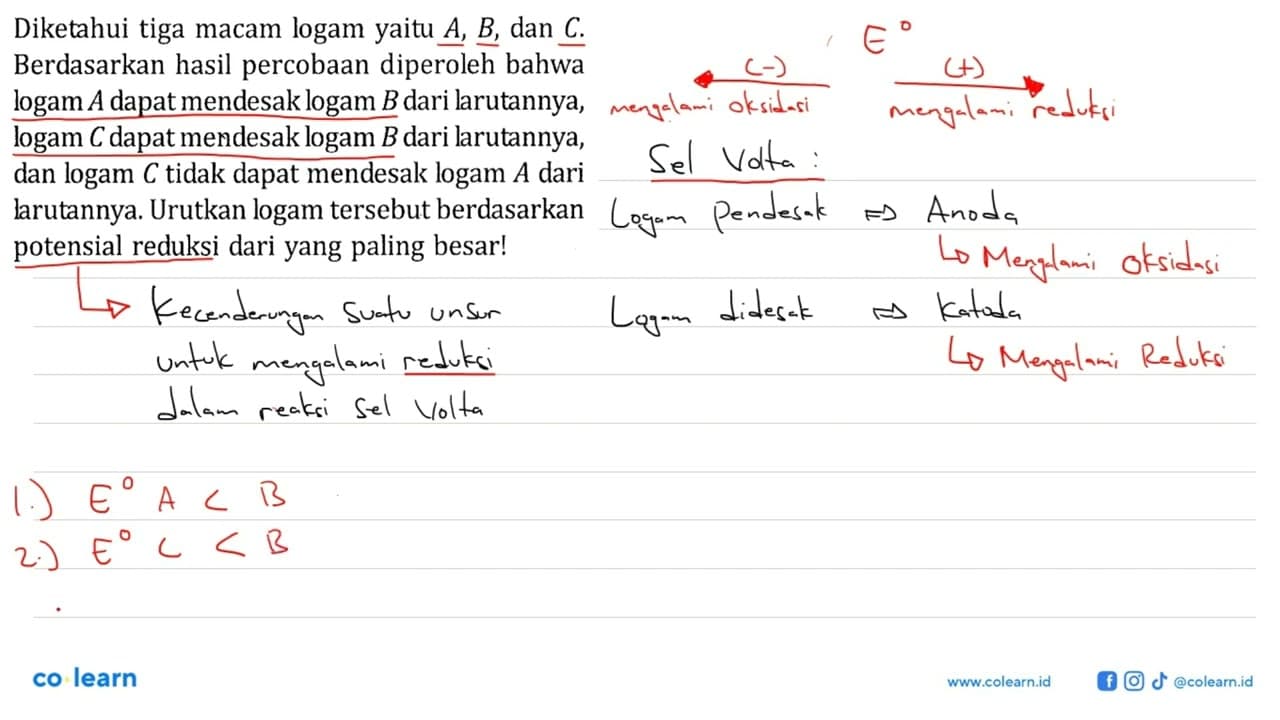 Diketahui tiga macam logam yaitu A, B, dan C.
Berdasarkan hasil percobaan diperoleh bahwa
logam A dapat mendesak logam B dari larutannya,
logam C dapat mendesak logam B dari larutannya,
dan logam C tidak dapat mendesak logam A dari
larutannya. Urutkan logam tersebut berdasarkan
potensial reduksi dari yang paling besar!
Kecenderungan suatu unsur
untuk mengalami reduksi
dalam reaksi sel Volta
E°
(-) (+)
mengalami oksidasi mengalami reduksi
Sel Volta :
Logam Pendesak ⇒ Anoda
↳ Mengalami Oksidasi
Logam didesak ⇒ Katoda
↳ Mengalami Reduksi
1.) E° A < B
2.) E° C < B
co learn
www.colearn.id @colearn.id